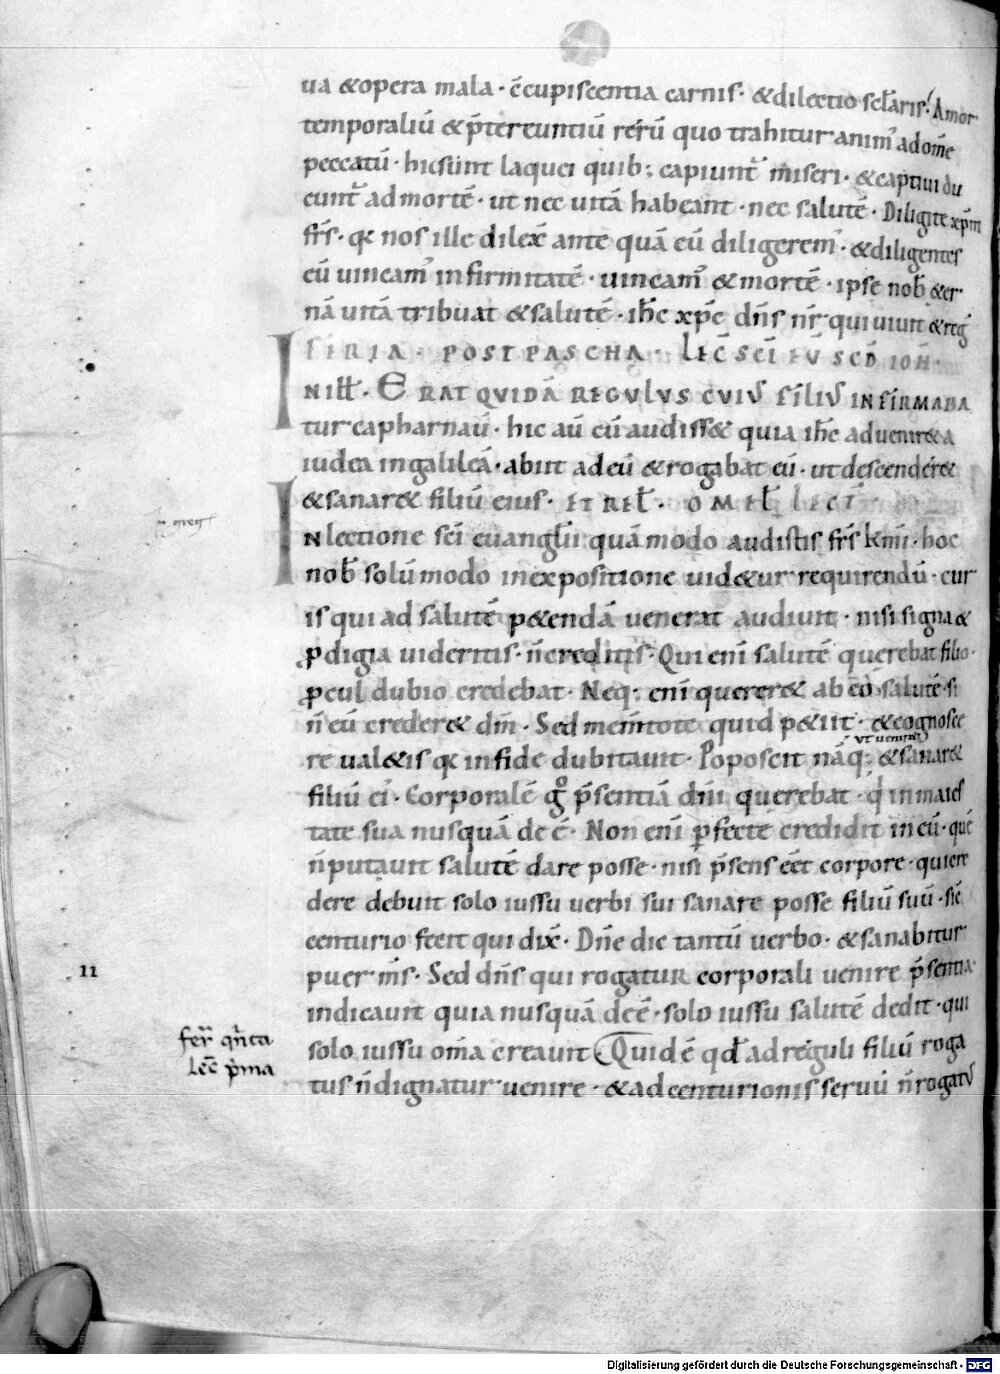 ua & opera mala · c̄cupiscentia carnis · & dilectio sc̄laris · Amor
temporaliū & p̄tereuntiū rerū quo trahitur anim᷒ ad om̄e
peccatū · hi sunt laquei quib; capiunt᷒ miseri · & captiui du
cunt᷒ ad mortē · ut nec uitā habeant · nec salutē · Diligite xp̄m
fr̄s · qr nos ille dilex̄ ante quā eū diligerem᷒ · & diligentes
eū uincam᷒ infirmitatē · uincam᷒ & mortē · ipse nob̄ &er
nā uitā tribuat & salutē · ih̄c xp̄c dn̄s nr̄ qui uiuit & reḡ
FERIA · POST PASCHA · LEC̄ SC̄I EU SCD̄ IOH̄
IN ILL̄ · ERAT QUIDĀ REGULUS CUIUS FILIUS INFIRMABA
tur capharnaū · hic aū cū audiss& quia ih̄c adueniret a
iudea in galileā · abiit ad eū & rogabat eū · ut descender&
& sanar& filiū eius · ET REL̄ · OMEL̄ LECT̄
IN lectione sc̄i euangl̄ii quā modo audistis fr̄s km̄i · hoc
nob̄ solū modo in expositione uid&ur requirendū · cur
is qui ad salutē p&endā uenerat audiuit · nisi signa &
ꝓdigia uideritis · n̄ creditis · Qui eni̅ salutē querebat filio ·
ꝓcul dubio credebat · Neq; eni̅ querer& ab eo salutē · si
n̄ eū creder& dm̄ · Sed mem̄tote quid p&iit · & cognosce
re ual&is qr in fide dubitauit · Poposcit nāq; ut ueniret & sanar&
filiū ei᷒ · Corporalē gͦ p̄sentiā dn̄i querebat · qͥ in maies
tate sua nusquā de ē · Non eni̅ ꝑfecte credidit in eū · quē
n̄ putauit salutē dare posse · nisi p̄sens eēt corpore · qui cre
dere debuit solo iussu uerbi sui sanare posse filiū suū · sic̄
centurio fecit qui dix̄ · Dn̄e dic tantū uerbo · & sanabitur
puer m̄s · Sed dn̄s qui rogatur corporali uenire p̄sentia ·
indicauit quia nusquā de ē · solo iussu salutē dedit · qui
solo iussu om̄a creauit Quid ē qd̄ ad reguli filiū roga
tus n̄ dignatur uenire · & ad centurionis seruū n̄ rogatus
11
fer̄ qͥnta
lec̄ p̄ma
Digitalisierung gefördert durch die Deutsche Forschungsgemeinschaft - DFG